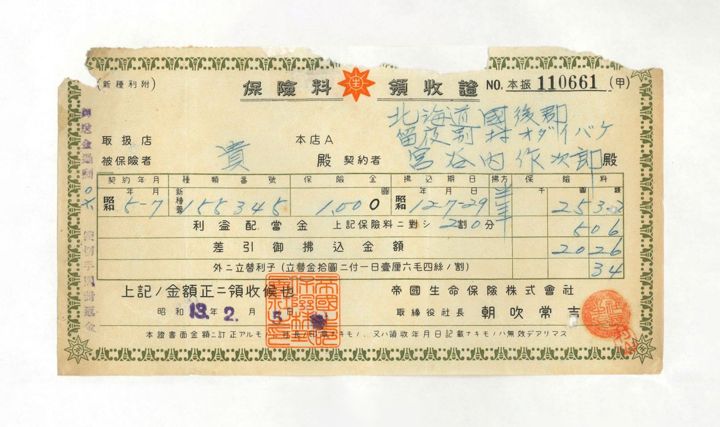 (新種利附)
保險料 領收證 NO.本振 110661 (甲)
北海道國後郡
取扱店 本店A 留夜別村オダイバケ
被保險者 貴 殿 契約者 宮谷内作次郎 殿
契約年月 種類番號 保險金 拂込期日 拂方 保險料
年月 新種普 圓 年月日 千圓錢
昭和 5-7 158345 1,000 昭和 12-7-29 半年 2532
利益配當金 上記保險料ニ對シ 2割0分 506
差引御拂込金額 2026
外ニ立替利子(立替金拾圓ニ付一日壹厘六毛四絲ノ割) 34
上記ノ金額正ニ領收候也 帝國生命保險株式會社
昭和 13年 2月 5日 取締役社長 朝吹常吉
本證書面金額ニ訂正アルモノ、社長ノ印章ナキモノ、又ハ領收年月日記載ナキモノハ無效デアリマス